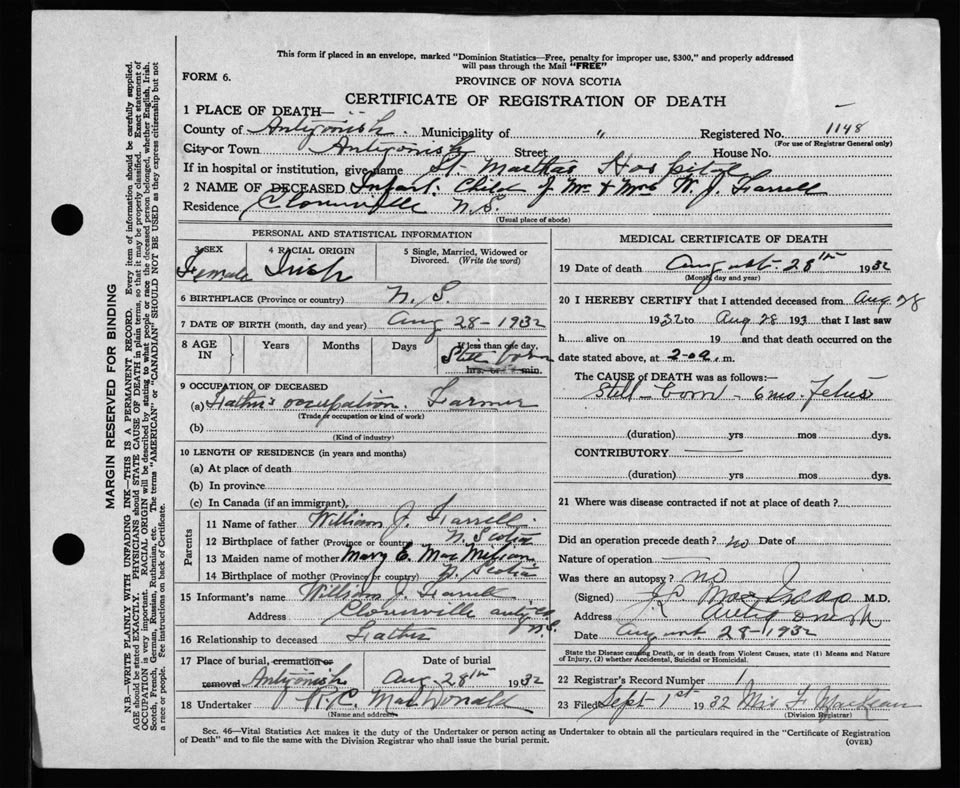 This form if placed in an envelope, marked "Dominion Statistics—Free, penalty for improper use, $300," and properly addressed
will pass through the Mail "FREE"
FORM 6.
PROVINCE OF NOVA SCOTIA
CERTIFICATE OF REGISTRATION OF DEATH
1 PLACE OF DEATH—
County of Antigonish. Municipality of " Registered No. 1148
(For use of Registrar General only)
City or Town Antigonish Street House No.
If in hospital or institution, give name St. Marthas Hospital
2 NAME OF DECEASED Infant Child of Mr. & Mrs W. J. Farrell
Residence N.S.
(Usual place of abode)
PERSONAL AND STATISTICAL INFORMATION
3 SEX Female
4 RACIAL ORIGIN Irish
5 Single, Married, Widowed or Divorced. (Write the word)
6 BIRTHPLACE (Province or country) N.S.
7 DATE OF BIRTH (month, day and year) Aug 28-1932
8 AGE IN Years Months Days If less than one day, Still born hrs. or min.
9 OCCUPATION OF DECEASED
(a) Father's occupation. Farmer
(Trade or occupation or kind of work)
(b)
(Kind of industry)
10 LENGTH OF RESIDENCE (in years and months)
(a) At place of death
(b) In province
(c) In Canada (if an immigrant)
Parents
11 Name of father William J. Farrell
12 Birthplace of father (Province or country) N. Scotia
13 Maiden name of mother Mary E.
14 Birthplace of mother (Province or country) N. Scotia
15 Informant's name William J. Farrell
Address N.S.
16 Relationship to deceased Father
17 Place of burial, cremation or Date of burial
removal Antigonish Aug. 28th 1932
18 Undertaker R.C. MacDonald
(Name and address)
MEDICAL CERTIFICATE OF DEATH
19 Date of death August 28th 1932
(Month, day and year)
20 I HEREBY CERTIFY that I attended deceased from Aug 28
1932 to Aug 28 193 that I last saw
h alive on 19 and that death occurred on the
date stated above, at 2-0 a. m.
The CAUSE of DEATH was as follows:—
Still-born - 6 mo. Fetus
(duration) yrs mos dys.
CONTRIBUTORY
(duration) yrs mos dys.
21 Where was disease contracted if not at place of death?
Did an operation precede death? no Date of
Nature of operation
Was there an autopsy? no
(Signed) M.D.
Address Antigonish
Date August 28-1932
State the Disease causing Death, or in death from Violent Causes, state (1) Means and Nature
of Injury, (2) whether Accidental, Suicidal or Homicidal.
22 Registrar's Record Number 1
23 Filed Sept 1st 1932 Miss F. MacLean
(Division Registrar)
Sec. 46—Vital Statistics Act makes it the duty of the Undertaker or person acting as Undertaker to obtain all the particulars required in the "Certificate of Registration
of Death" and to file the same with the Division Registrar who shall issue the burial permit.
(OVER)
MARGIN RESERVED FOR BINDING
N.B.—WRITE PLAINLY WITH UNFADING INK—THIS IS A PERMANENT RECORD. Every item of information should be carefully supplied.
AGE should be stated EXACTLY. PHYSICIANS should STATE CAUSE OF DEATH in plain terms, so that it may be properly classified. Exact statement of
OCCUPATION is very important. RACIAL ORIGIN will be described by stating to what people or race the deceased person belonged, whether English, Irish,
Scotch, French, German, Russian, Ruthenian, etc. The terms "AMERICAN" or "CANADIAN" SHOULD NOT BE USED as they express citizenship but not
a race or people. Fee instructions on back of Certificate.